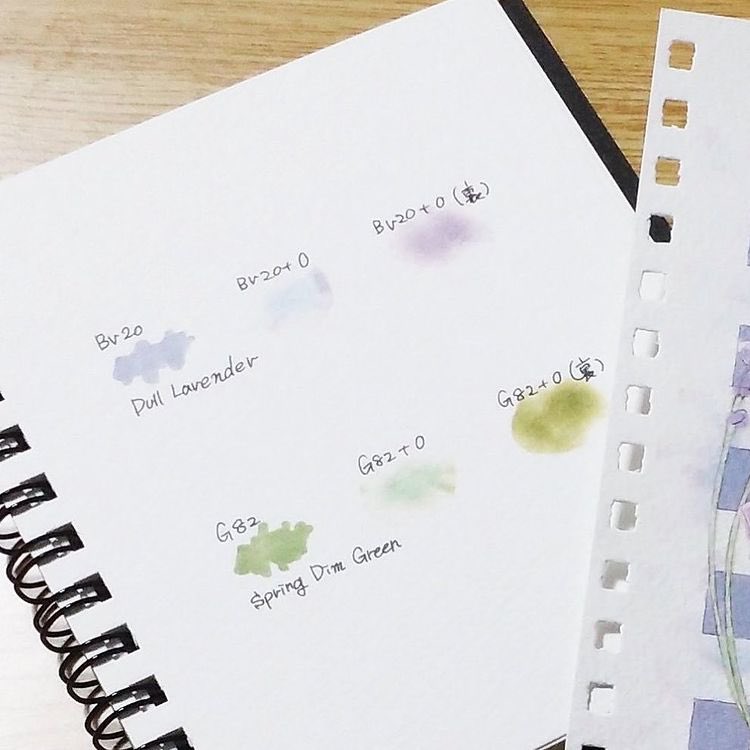 Bv20
Bv20+0
Bv20+0 (裏)
Dull Lavender
G82
G82+0
G82+0 (裏)
Spring Dim Green